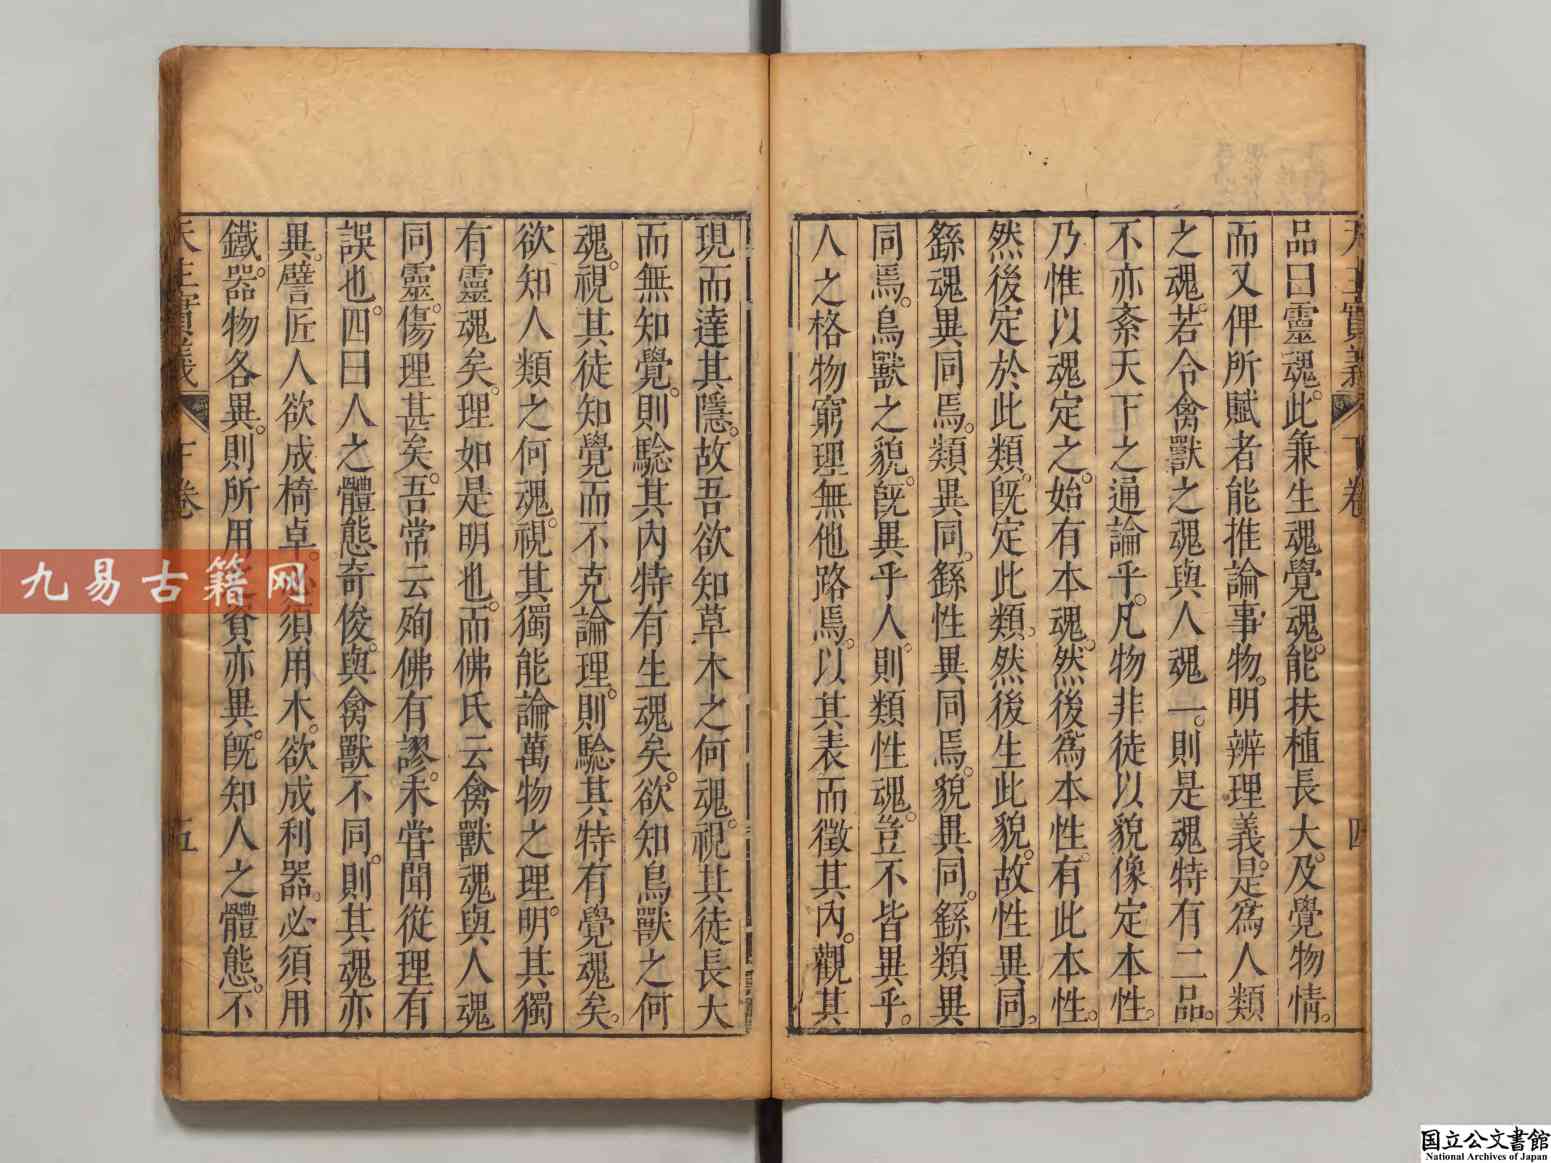 天主實義 下卷 四
品曰靈魂。此兼生魂覺魂。能扶植長大。及覺物情。
而又俾所賦者能推論事物。明辨理義。是爲人類
之魂。若令禽獸之魂與人魂一。則是魂特有二品。
不亦紊天下之通論乎。凡物非徒以貌像定本性。
乃惟以魂定之。始有本魂。然後爲本性。有此本性。
然後定於此類。旣定此類。然後生此貌。故性異同。
繇魂異同焉。類異同。繇性異同焉。貌異同。繇類異
同焉。鳥獸之貌。旣異乎人。則類性魂。豈不皆異乎。
人之格物窮理無他路焉。以其表而徵其內。觀其
現而達其隱。故吾欲知草木之何魂。視其徒長大
而無知覺。則驗其內特有生魂矣。欲知鳥獸之何
魂。視其徒知覺而不克論理。則驗其特有覺魂矣。
欲知人類之何魂。視其獨能論萬物之理。明其獨
有靈魂矣。理如是明也。而佛氏云禽獸魂與人魂
同靈。傷理甚矣。吾常云殉佛有謬。未嘗聞從理有
誤也。四曰人之體態奇俊。與禽獸不同。則其魂亦
異。譬匠人欲成椅卓。必須用木。欲成利器。必須用
鐵。器物各異。則所用之資亦異。旣知人之體態。不
天主實義 下卷 五
九易古籍网
国立公文書館
National Archives of Japan